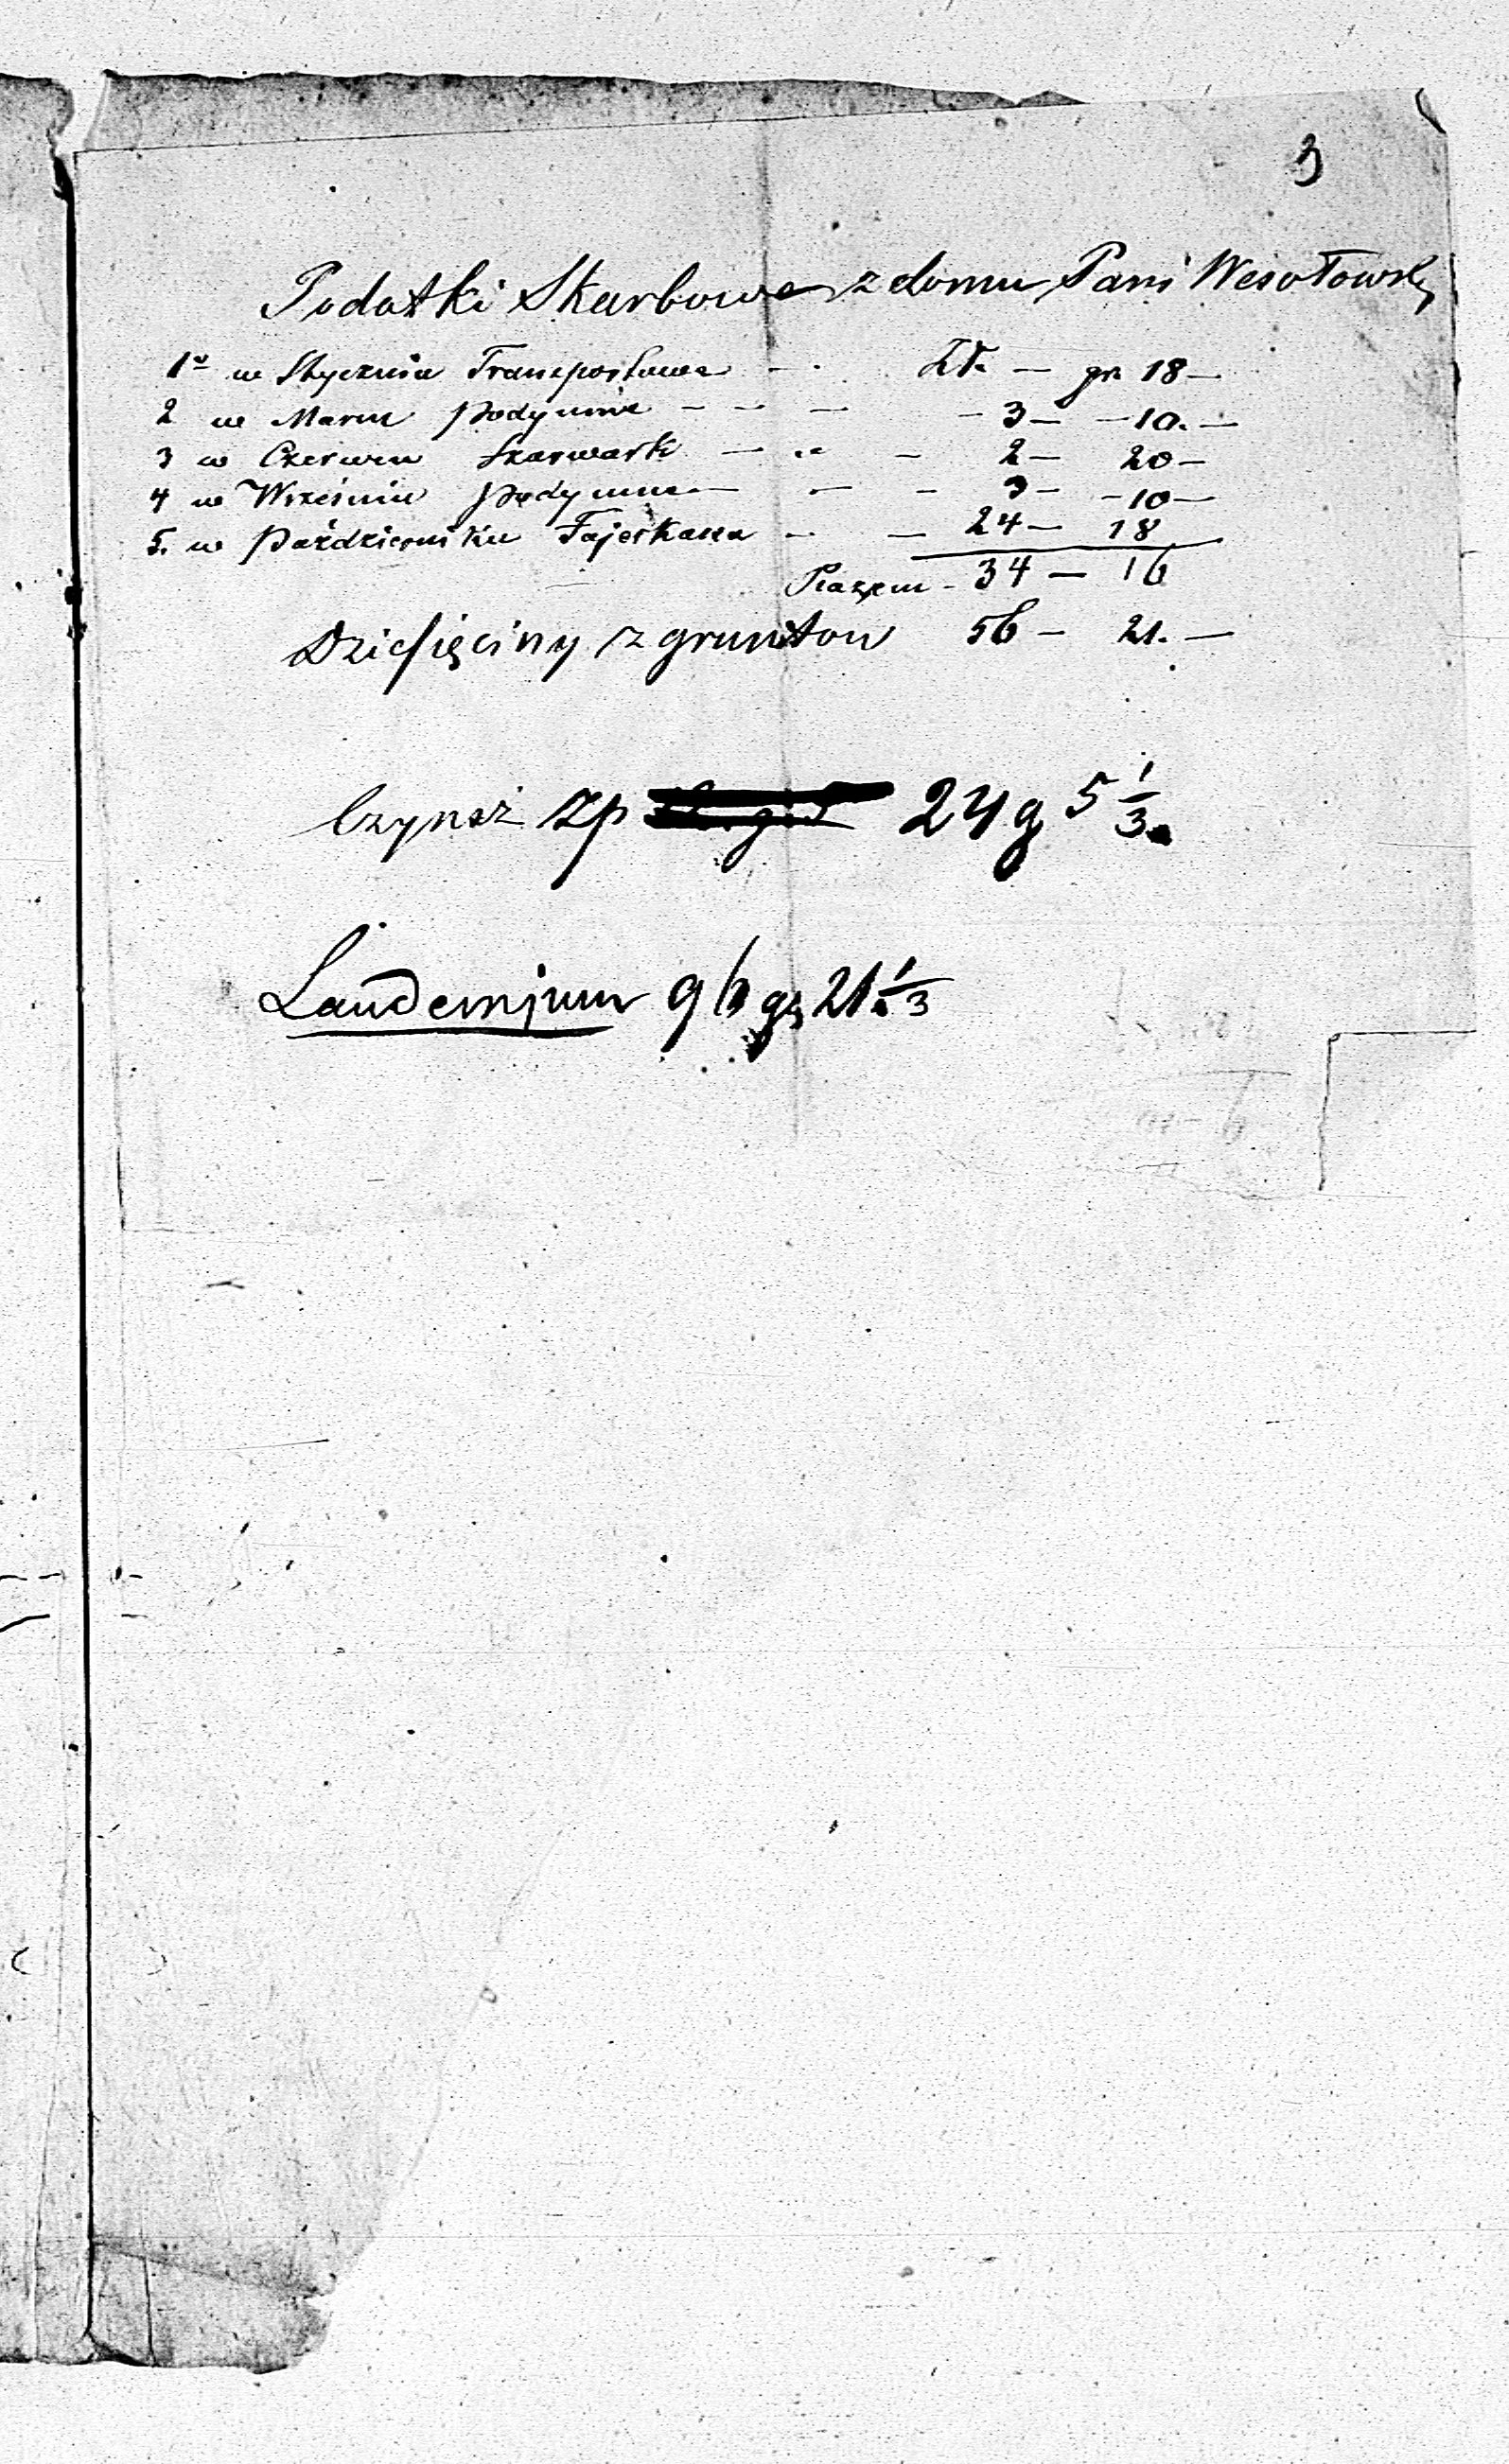 3
Podatki Skarbowe z domu Pani Wesołowsky
1o w Styczniu Transportowe - - Zł. - gr. 18 -
2 w Marcu podymne - - - - 3 - - 10. -
3 w Czerwcu Szarwark - - - 2 - 20 -
4 w Wrześniu podymne - - - 3 - - 10 -
5. w Październiku Fajerkassa - - 24 - 18
Razem - 34 - 16
Dziesięciny z gruntow 56 - 21. -
Czynsz zp 24 g 5 1/3.
Laudemjum 96 gr 21 1/3